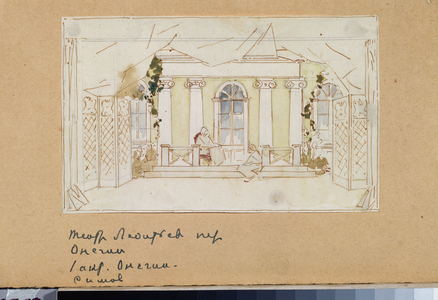 Театр Леонтьев пер
Онегин
1 акт. Онегин.
Симов